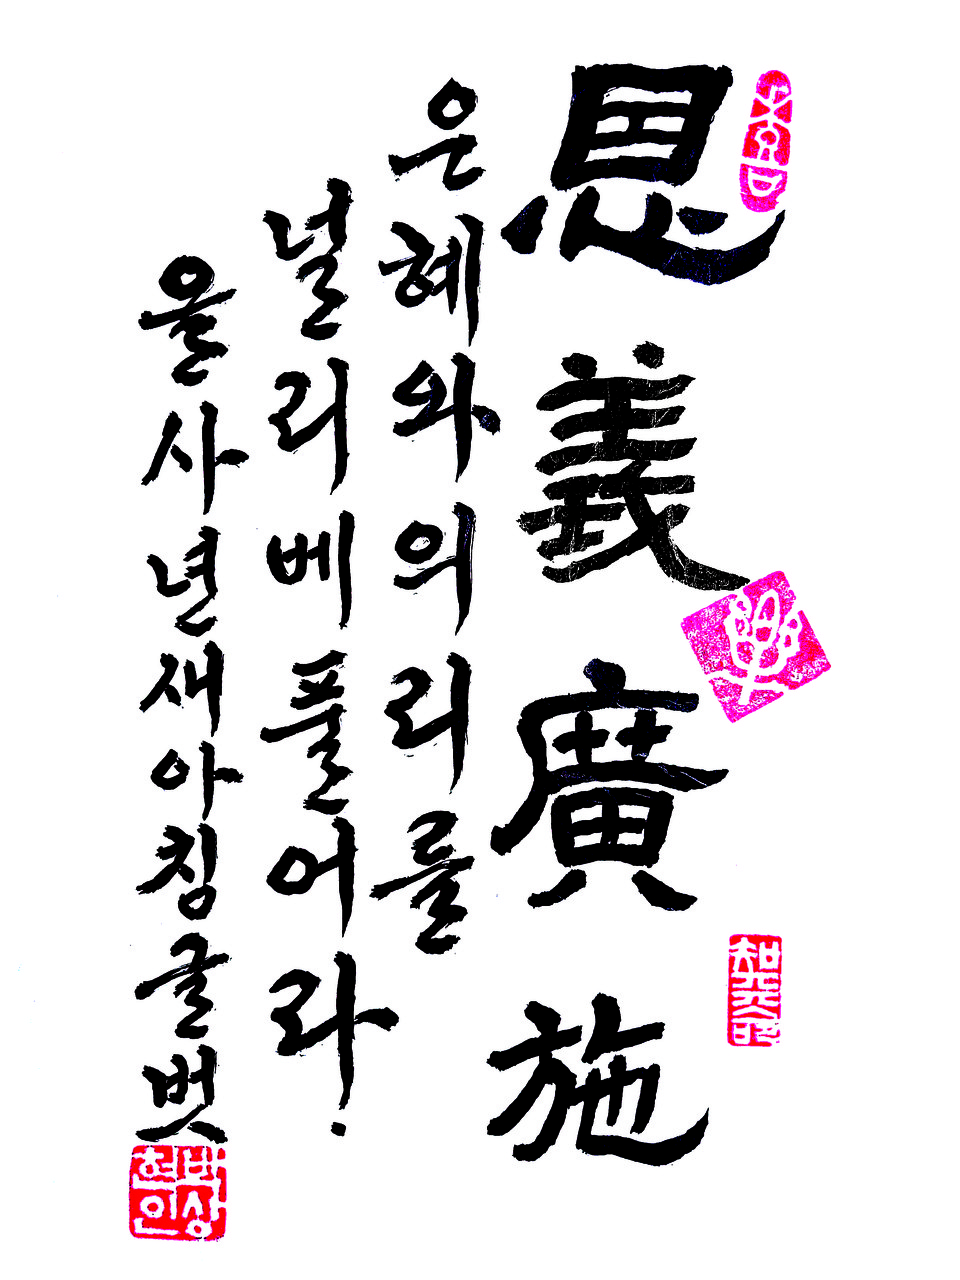 恩義廣施
은혜와 의리를
널리 베풀어라.
을사년 새아침 글벗